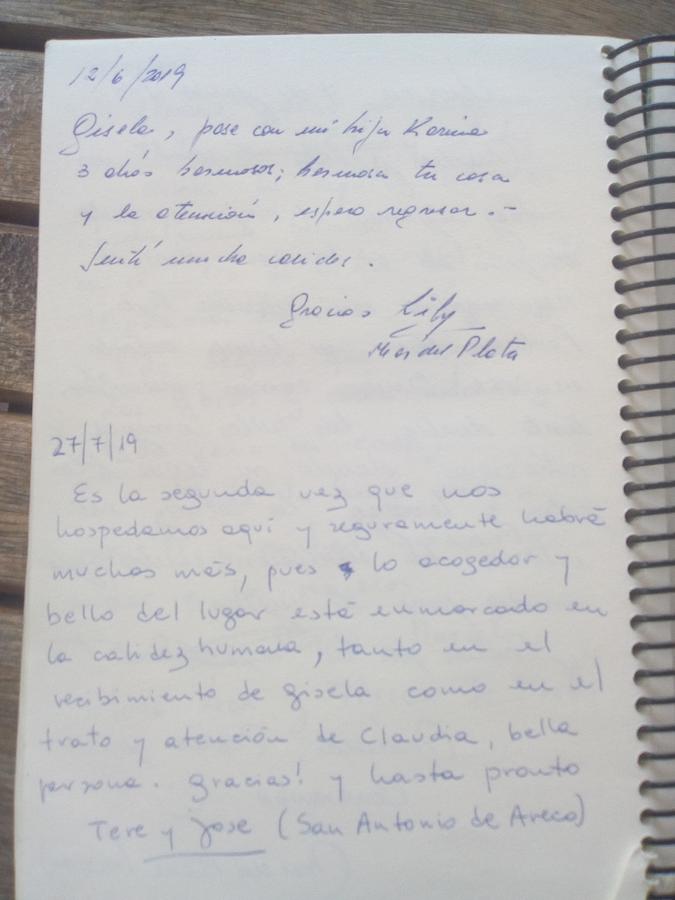 12/6/2019
Gisela, pase con mi hija Karina
3 días hermosos; hermosa tu casa
y la atención, espero regresar.-
Sentí mucha calidez.
Gracias Lily
Mar del Plata
27/7/19
Es la segunda vez que nos
hospedamos aquí y seguramente habrá
muchas más, pues lo acogedor y
bello del lugar está enmarcado en
la calidez humana, tanto en el
recibimiento de Gisela como en el
trato y atención de Claudia, bella
persona. Gracias! y hasta pronto
Tere y Jose (San Antonio de Areco)